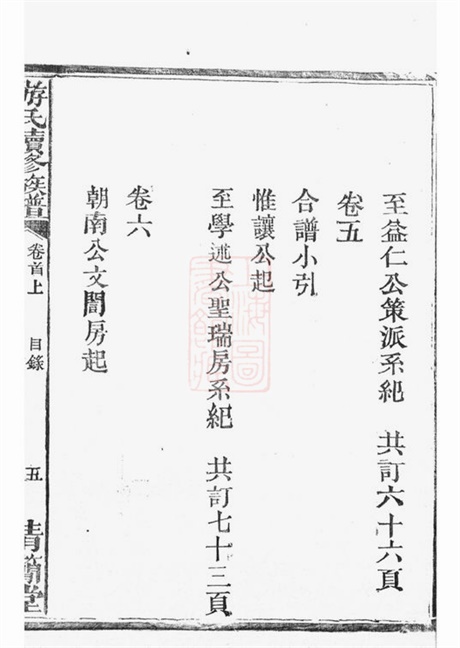 至益仁公策派系紀 共訂六十六頁
卷五
合譜小引
惟讓公起
至學述公聖瑞房系紀 共訂七十三頁
卷六
朝南公文闇房起
游氏續修族譜
卷首上
目錄
五
青蘭堂